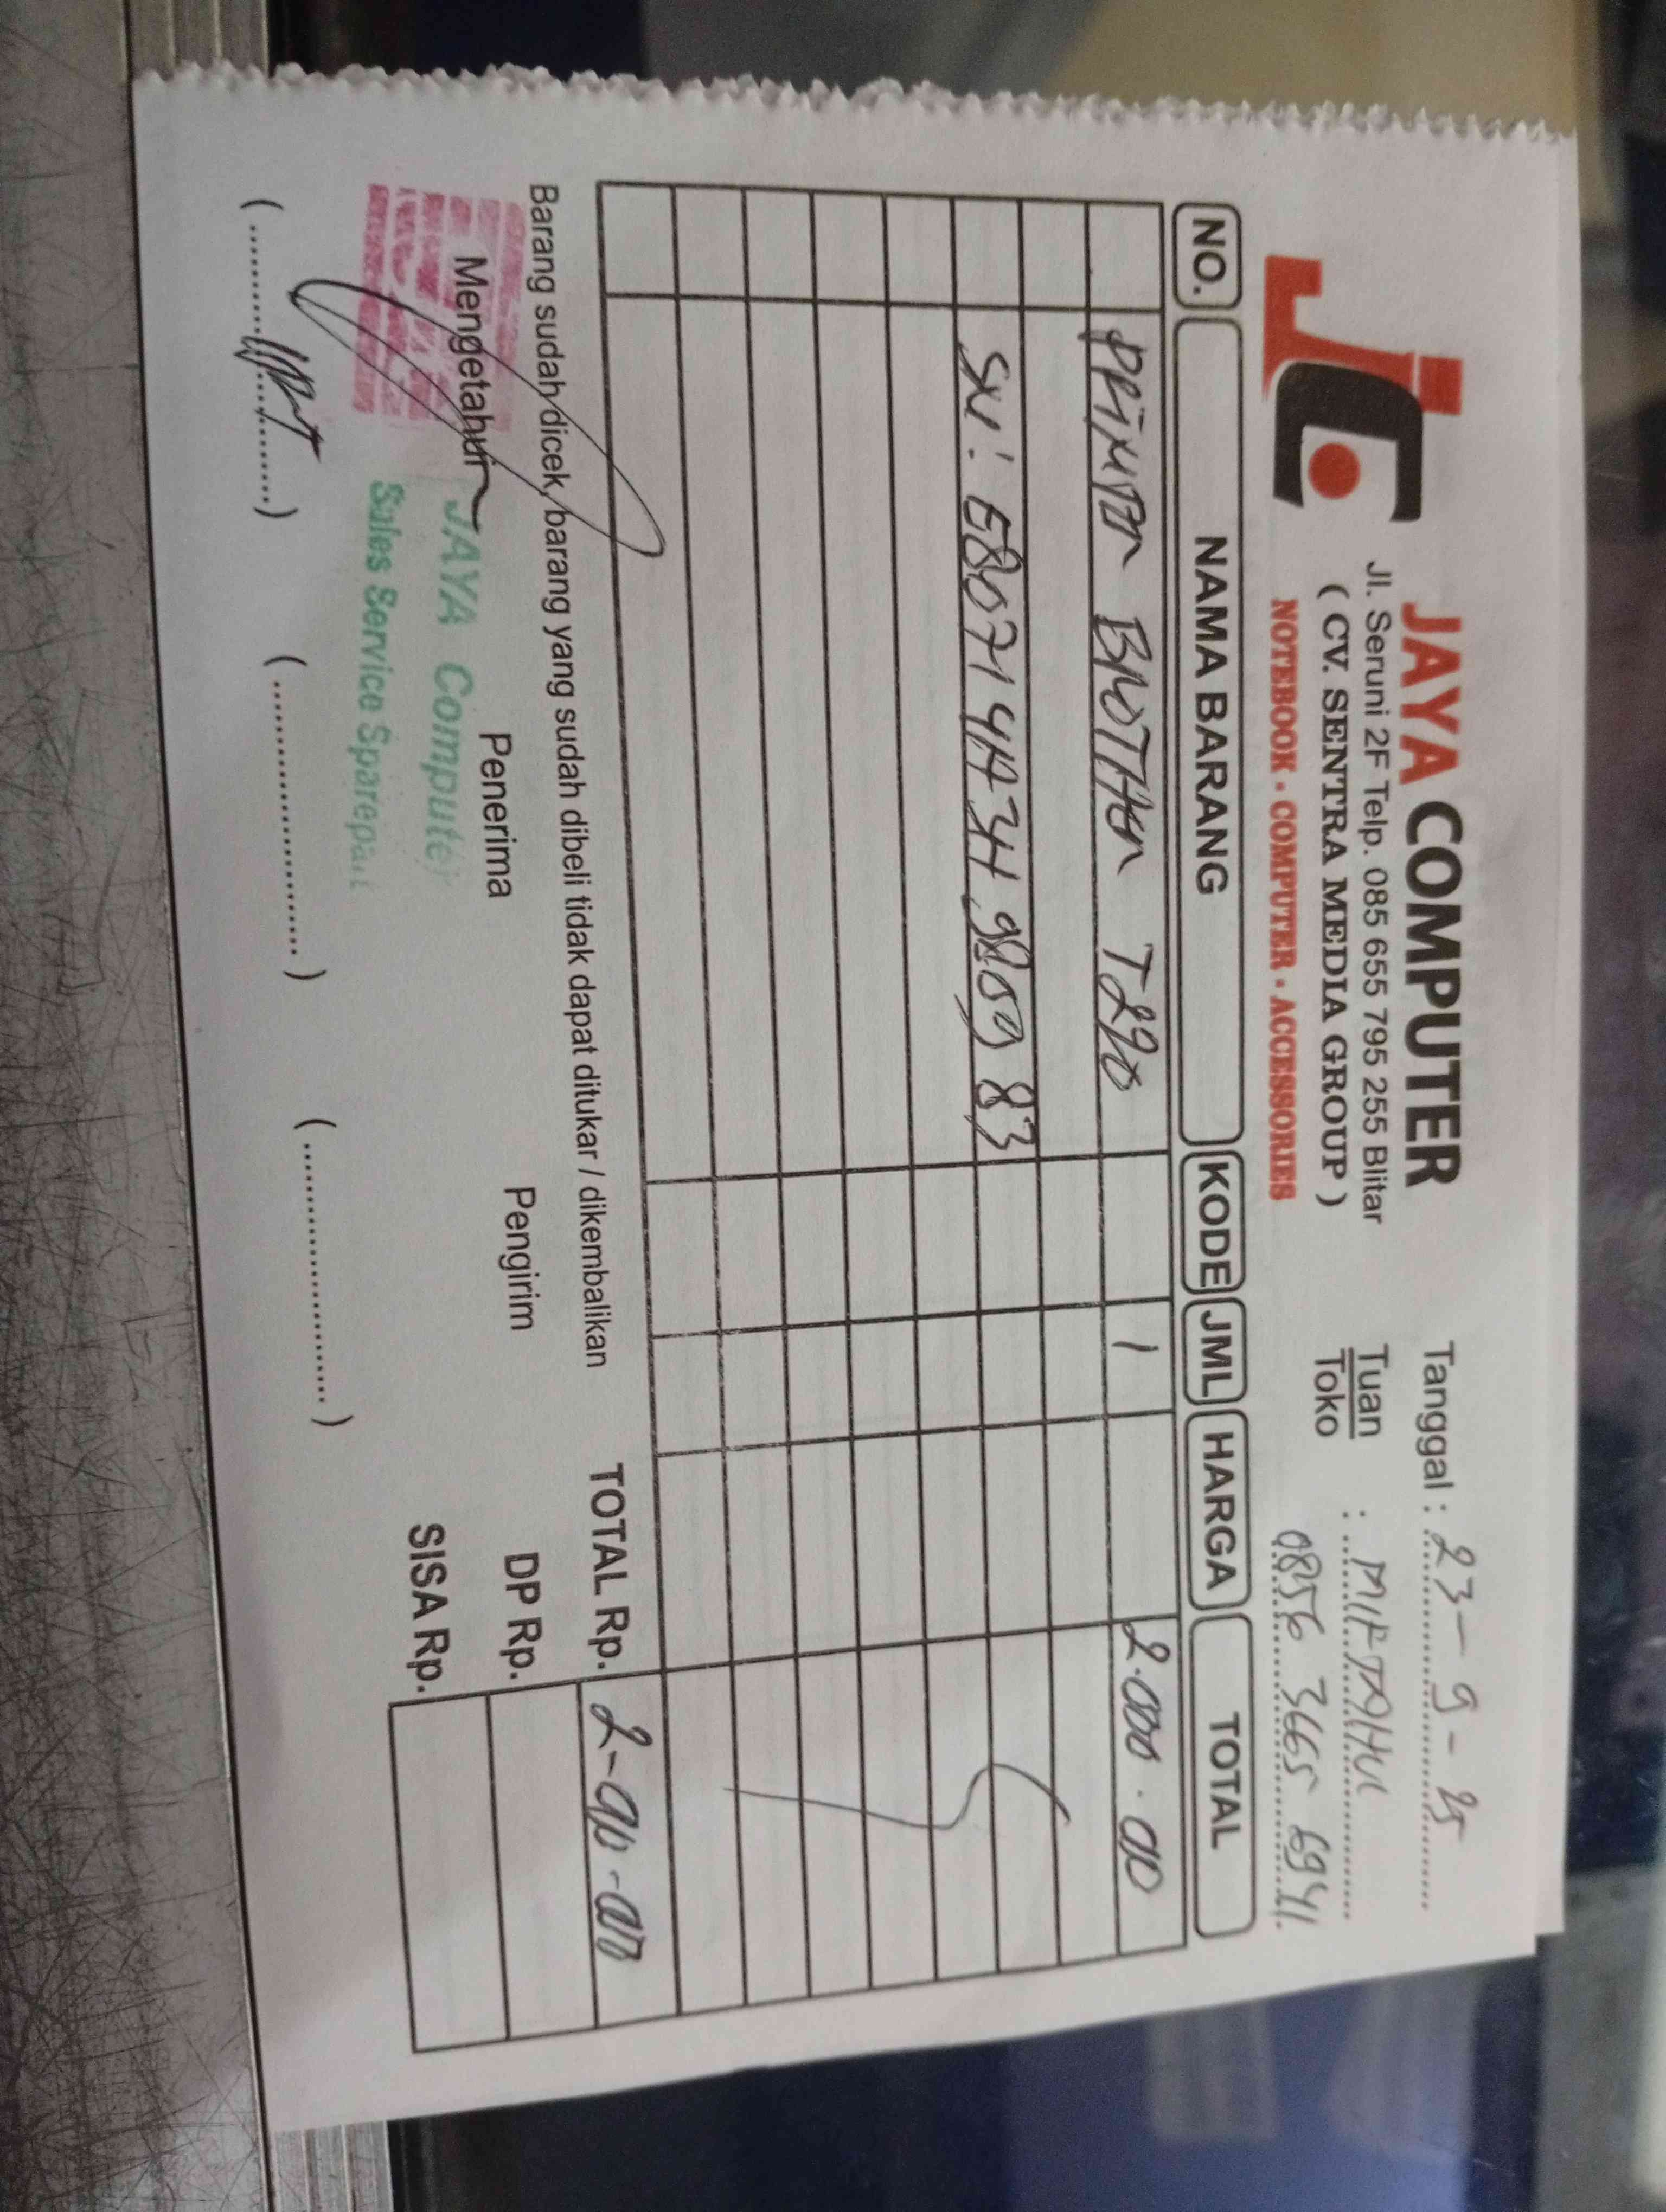 JC
JAYA COMPUTER
Jl. Seruni 2F Telp. 085 655 795 255 Blitar
( CV. SENTRA MEDIA GROUP )
NOTEBOOK - COMPUTER - ACCESSORIES
Tanggal : 23 - 9 - 25
Tuan
Toko : MIFTAHUL
0856 3665 6941
NO. NAMA BARANG KODE JML HARGA TOTAL
PRINTER BROTHER T290 1 2.000.000
SN : E80714A3H980983
Barang sudah dicek, barang yang sudah dibeli tidak dapat ditukar / dikembalikan
TOTAL Rp. 2-000-000
Mengetahui Penerima Pengirim DP Rp.
JAYA Computer
Sales Service Sparepart
SISA Rp.
(....................) (....................) (....................)